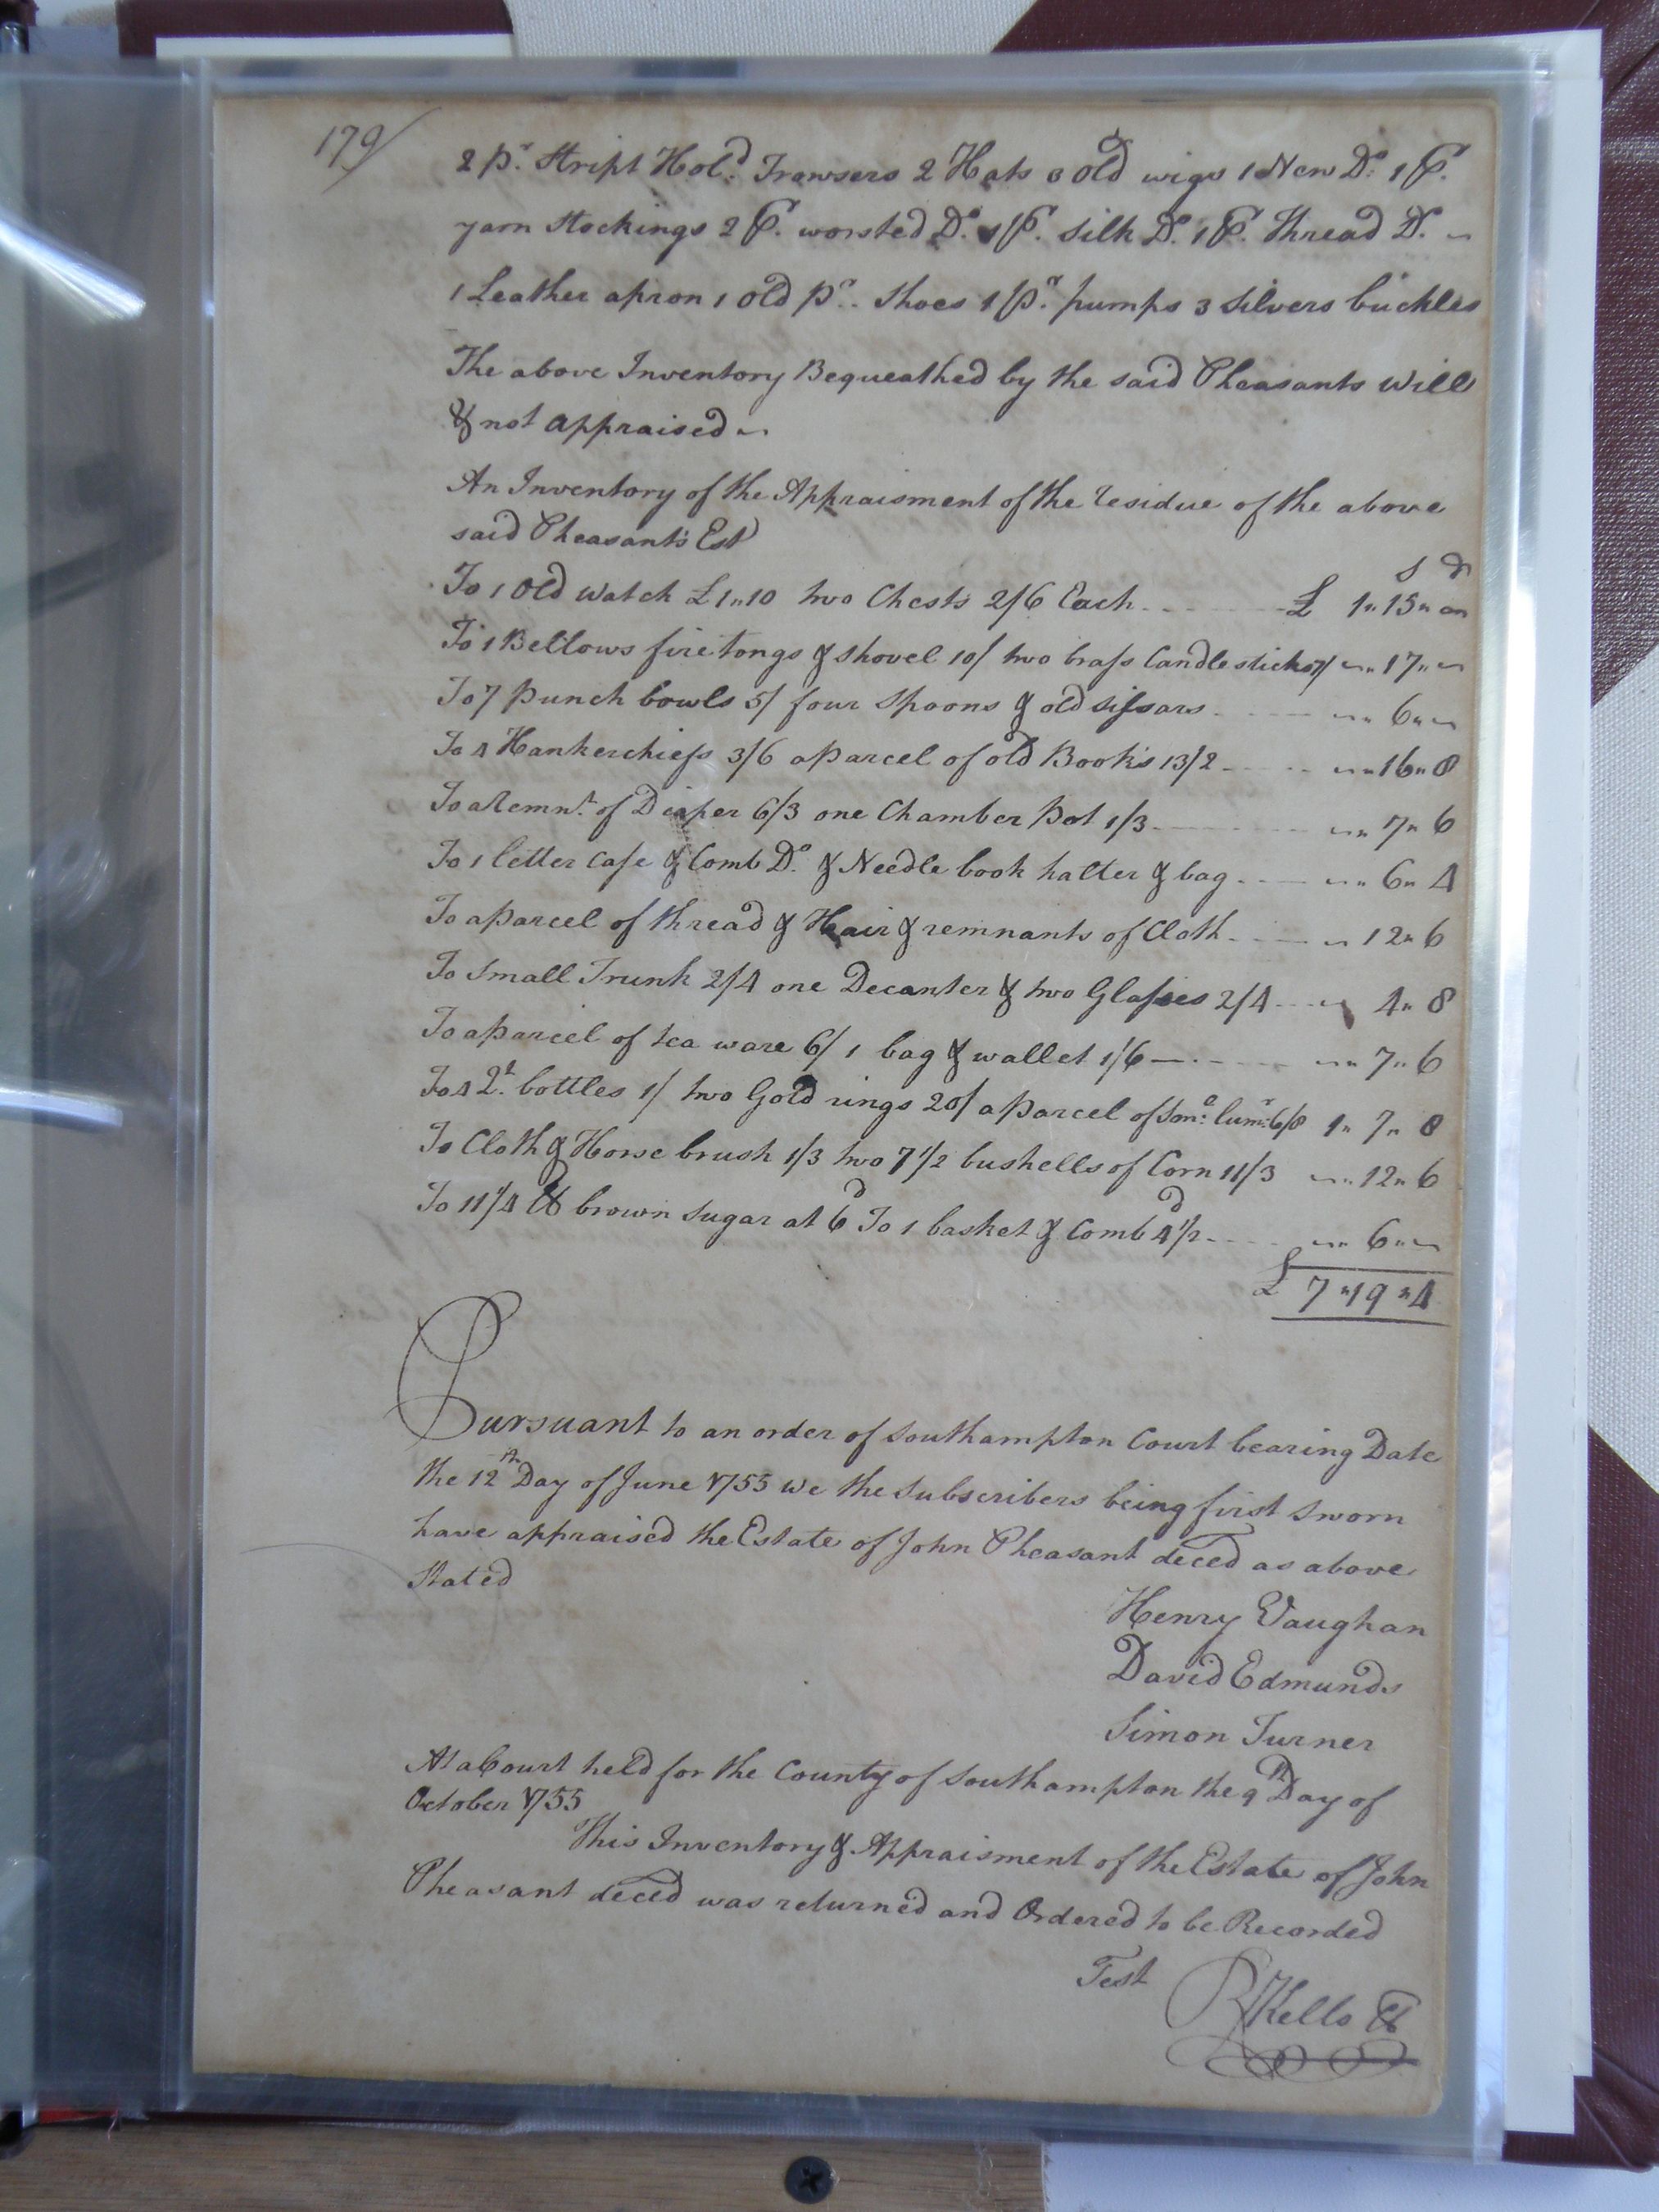 179
2 pr. Stript Hold. Trowsers 2 Hats 3 old wigs 1 New Do. 1 P.
yarn Stockings 2 P. worsted Do. 1 P. Silk Do. 1 P. thread Do.
1 Leather apron 1 old pr. Shoes 1 pr. pumps 3 Silvers buckles
The above Inventory Bequeathed by the said Pheasants Will
& not appraised
An Inventory of the Appraisment of the residue of the above
said Pheasant's Est
S D
To 1 Old Watch £1"10 two Chests 2/6 Each £ 1"15"
To 1 Bellows fire tongs & shovel 10/ two brass Candlesticks 7/ 17"
To 7 punch bowls 5/ four Spoons & old sissars 6"
To 4 Hankerchiefs 3/6 a parcel of old Books 13/2 16"8
To a remnt. of Diaper 6/3 one Chamber Pot 1/3 7"6
To 1 letter case & Comb Do. & Needle book halter & bag 6"4
To a parcel of thread & Hair & remnants of Cloth 12"6
To Small Trunk 2/4 one Decanter & two Glasses 2/4 4"8
To a parcel of tea ware 6/ 1 bag & wallet 1/6 7"6
To 4 Qt. bottles 1/ two Gold rings 20/ a parcel of lumr. 6/8 1"7"8
To Cloth & Horse brush 1/3 two 7 1/2 bushells of Corn 11/3 12"6
To 11 1/4 lb brown Sugar at 6d To 1 basket & Comb 4 1/2d 6"
£ 7"19"4
Pursuant to an order of Southampton Court bearing Date
the 12th Day of June 1755 we the Subscribers being first sworn
have appraised the Estate of John Pheasant deced as above
Stated
Henry Vaughan
David Edmunds
Simon Turner
At a Court held for the County of Southampton the 9th Day of
October 1755
This Inventory & Appraisment of the Estate of John
Pheasant deced was returned and Ordered to be Recorded
Test
R Kello